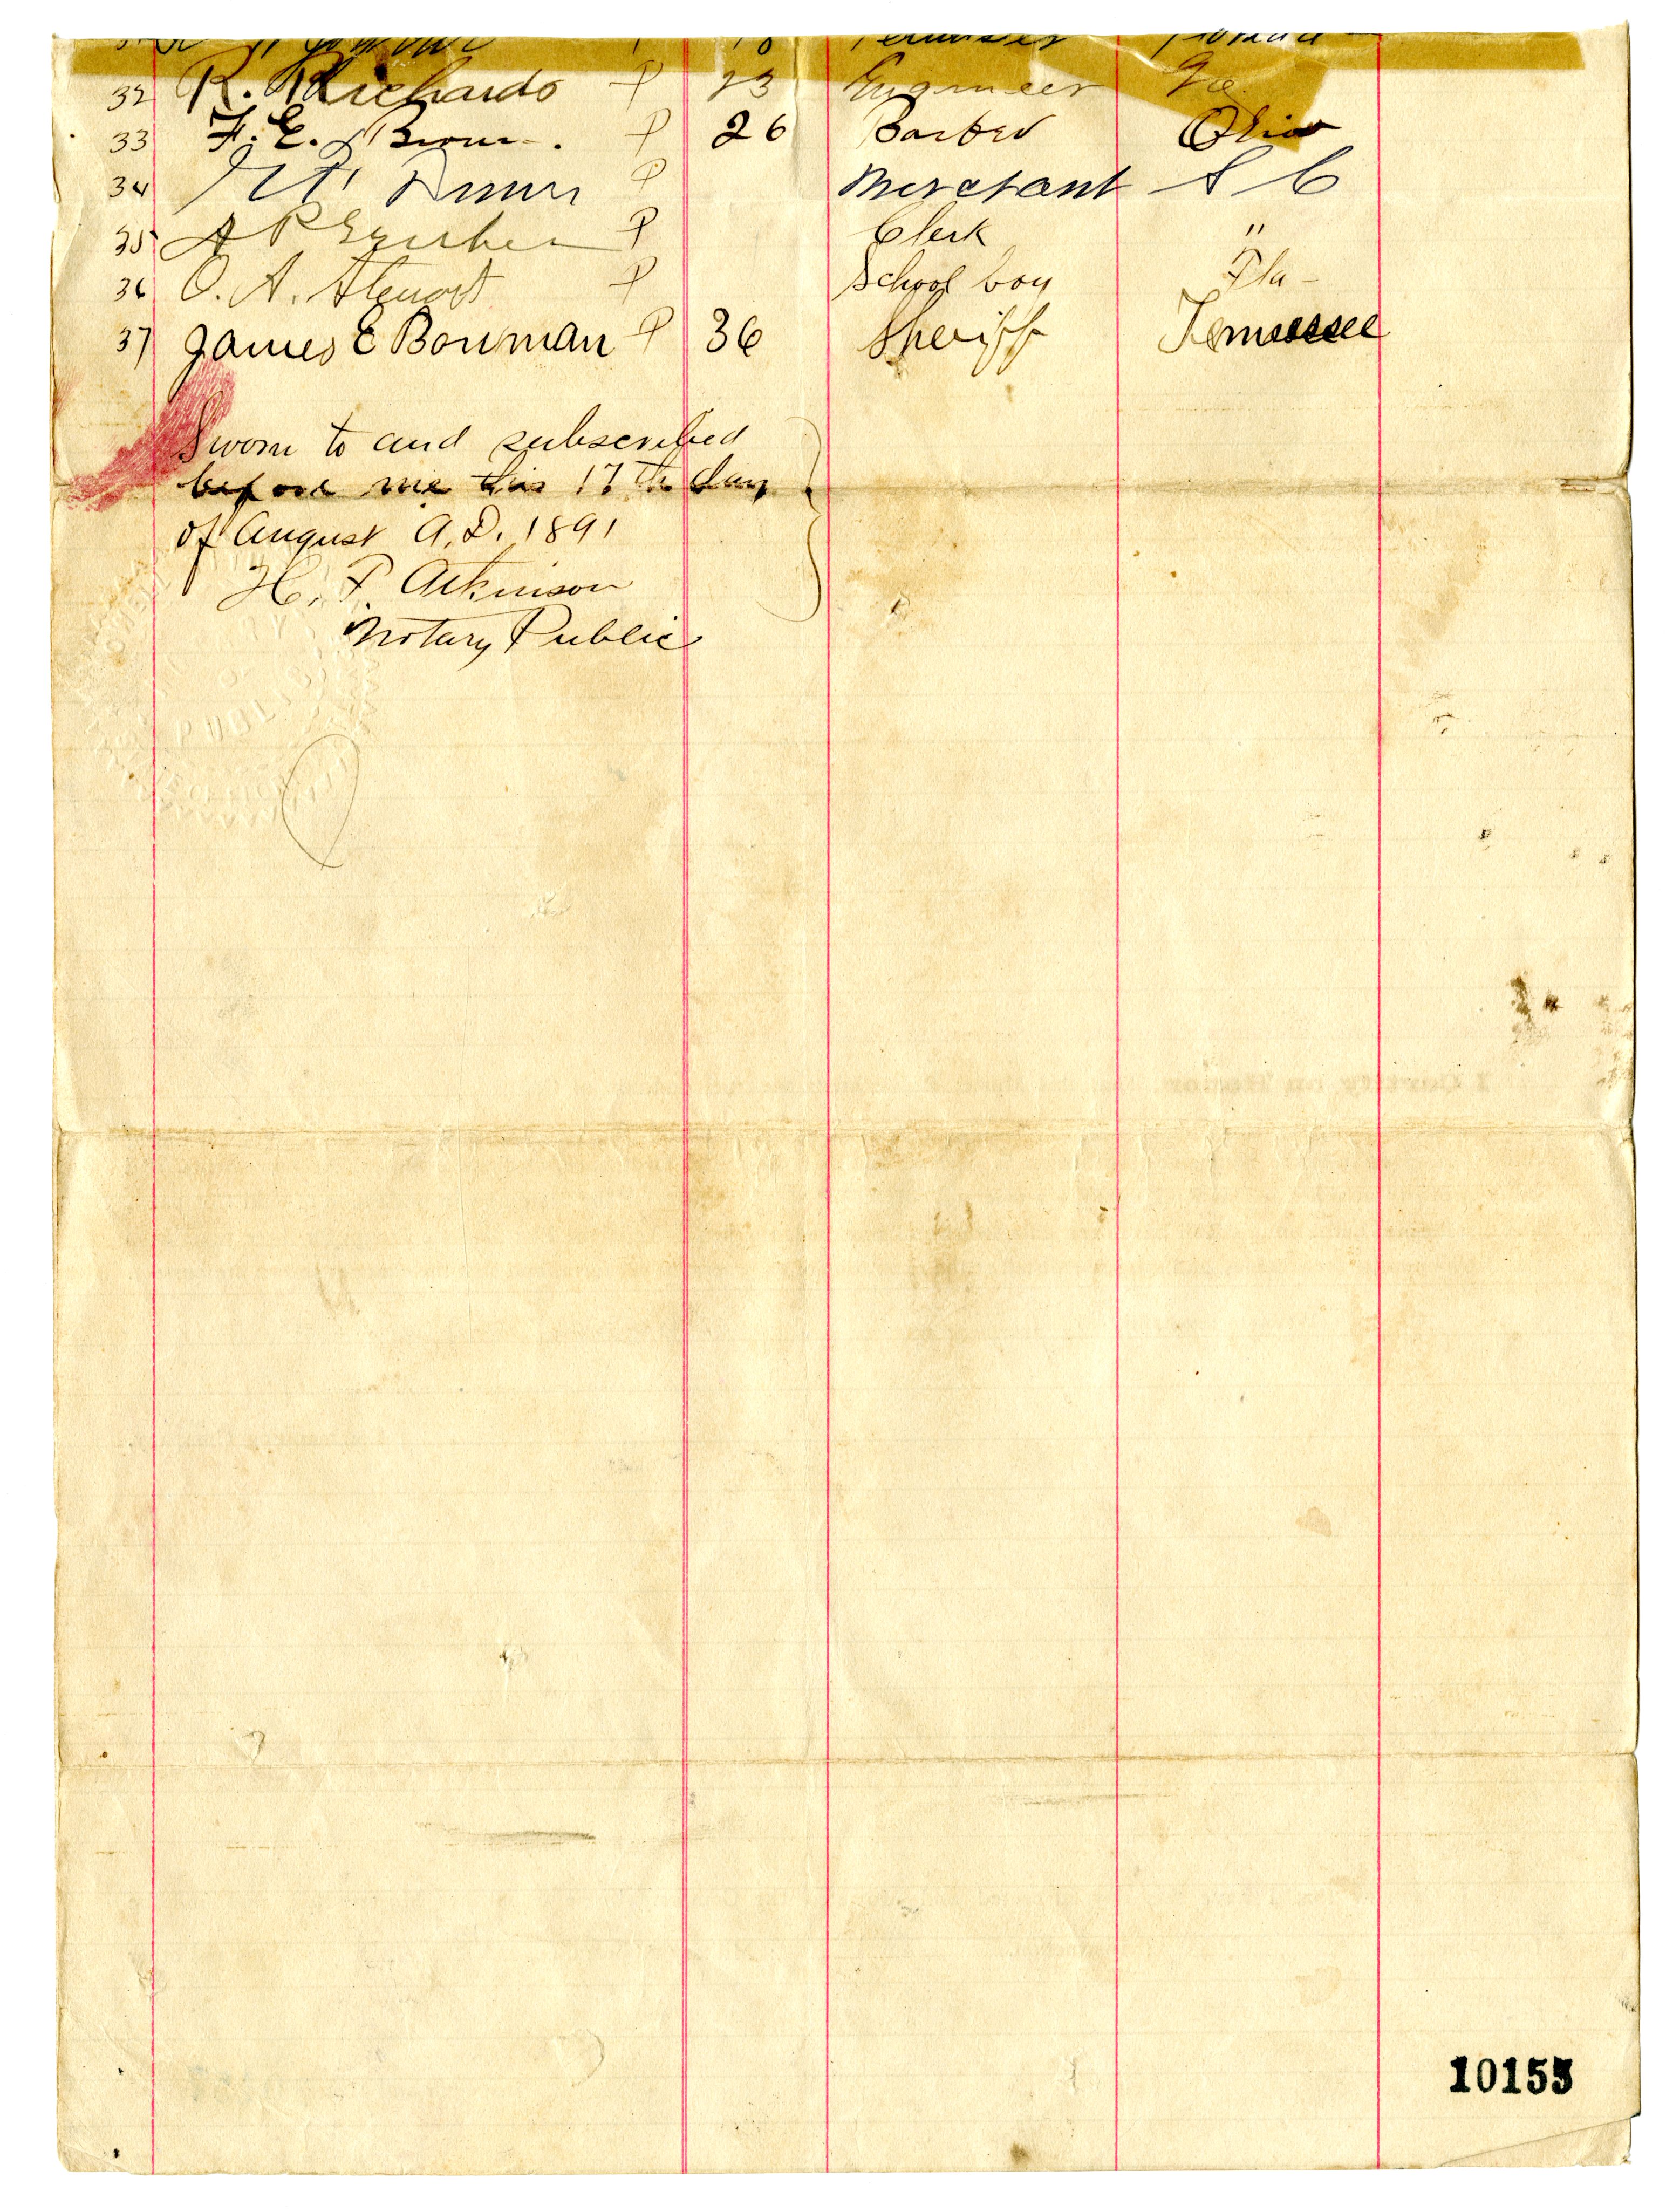 32 R. Richards P 23 Engineer Ga
33 F. E. Brown. P 26 Barber Ohio
34 P Merchant S C
35 P Clerk "
36 O. A. Stewart P School boy Fla -
37 James E Bowman P 36 Sheriff Tennessee
Sworn to and subscribed
before me this 17th day
of August A.D. 1891
H. F. Atkinson
Notary Public
10153